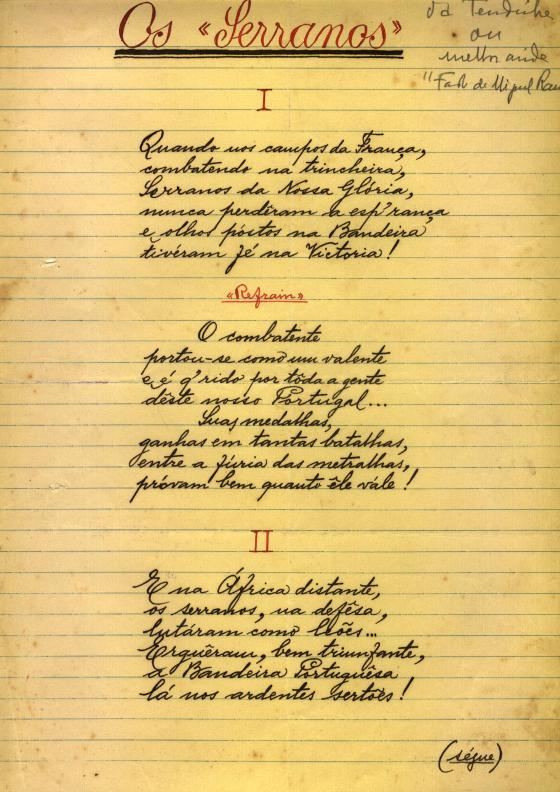 Os «Serranos»
da Tendinha
ou
melhor ainda
"Fado de Miguel Ram
I
Quando nos campos da França,
combatendo na trincheira,
Serranos da Nossa Glória,
nunca perdêram a esp'rança
e olhos póstos na Bandeira
tivéram fé na Victoria!
«Refrain»
O combatente
portou-se como um valente
e é q'rido por tôda a gente
dêste nosso Portugal...
Suas medalhas,
ganhas em tantas batalhas,
entre a fúria das metralhas,
próvam bem quanto êle vale!
II
E na África distante,
os serranos, na defêsa,
lutáram como leões...
Erguêram, bem triunfante,
a Bandeira Portuguêsa
lá nos ardentes sertões!
(ségue)